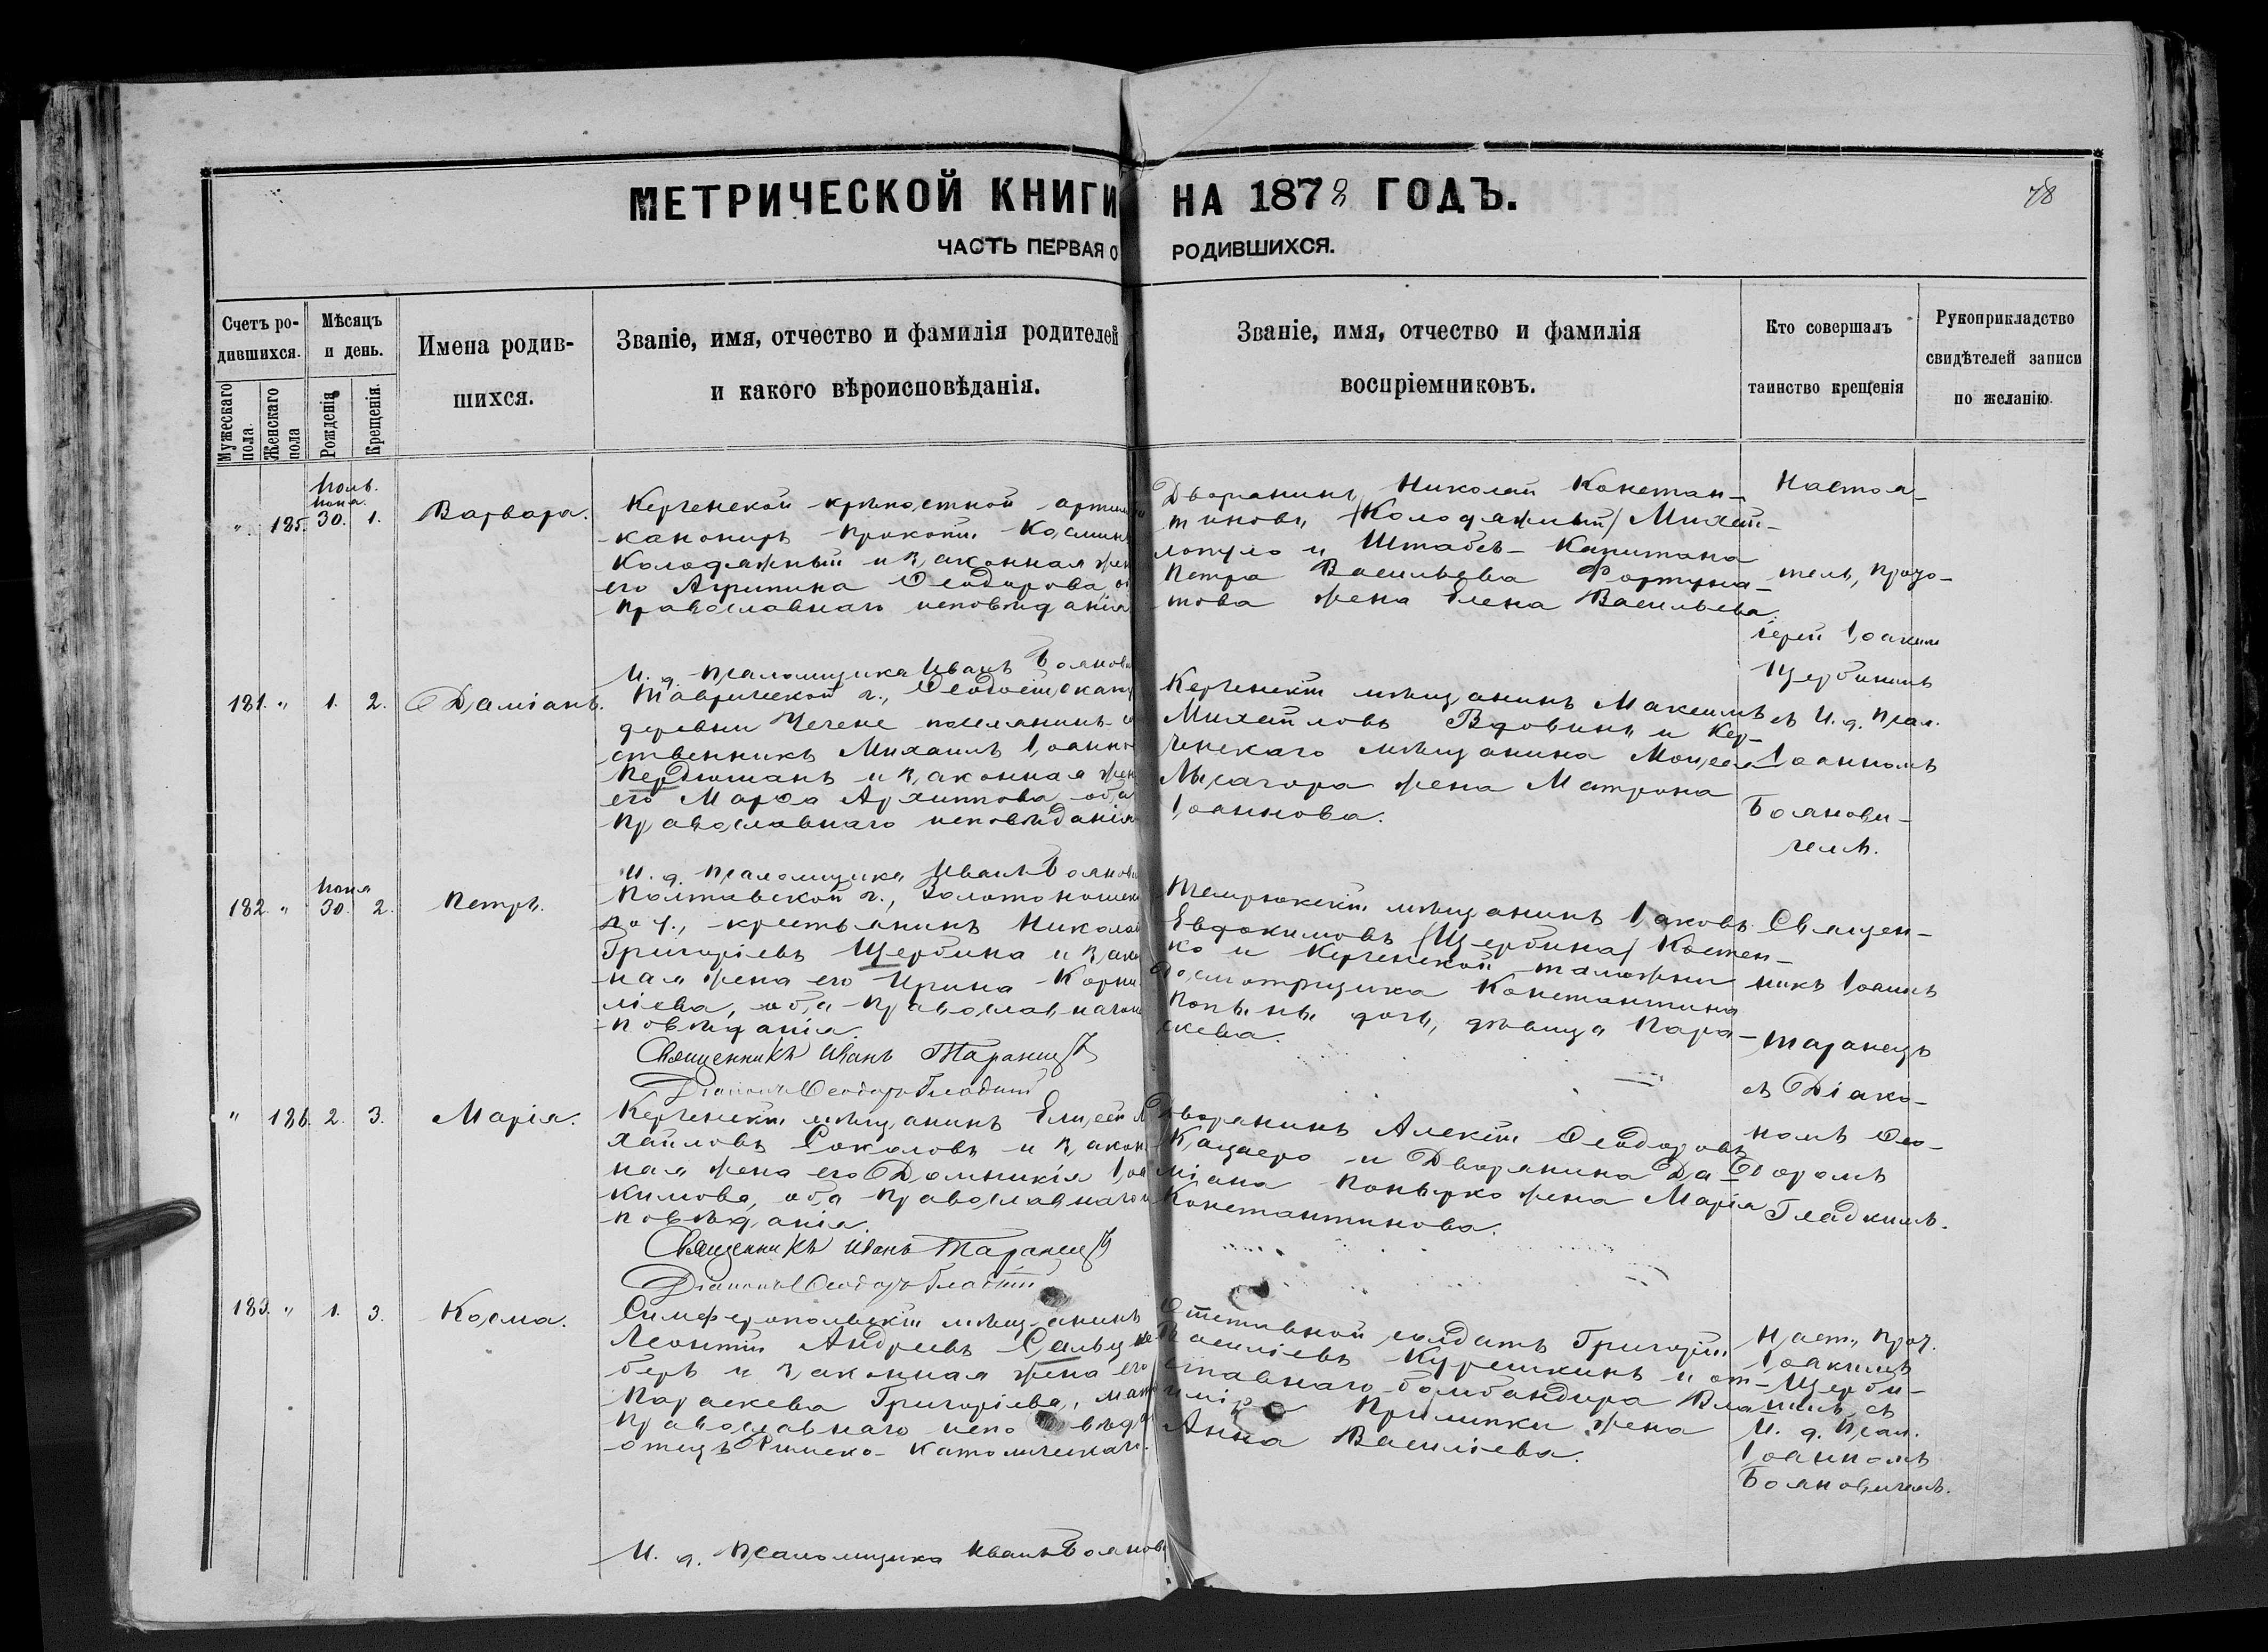 МЕТРИЧЕСКОЙ КНИГИ НА 1878 ГОДЪ.
78
ЧАСТЬ ПЕРВАЯ О РОДИВШИХСЯ.
Счетъ родившихся.
Мужескаго пола.
Женскаго пола
Мѣсяцъ и день.
Рожденія
Крещенія.
Имена родившихся.
Званіе, имя, отчество и фамилія родителей
и какого вѣроисповѣданія.
Званіе, имя, отчество и фамилія
воспріемниковъ.
Кто совершалъ
таинство крещенія
Рукоприкладство
свидѣтелей записи
по желанію.
" 185. 30. 1. Варвара.
Керченской крѣпостной
канониръ Прокопій Косминъ
Колодяжный и законная
его Агрипина Ѳеодорова,
православнаго исповѣданія
И. д. псаломщика Иванъ
Дворянинъ Николай Констан-
тиновъ /Колодяжный/ Михай-
лопуло и Штабсъ-Капитана
Петра Васильева Фортуна-
това жена Елена Васильева.
Настоя-
тель, Прото-
іерей Іоакимъ
Щербининъ
съ И. д. Псал.
Іоанномъ
Боянови-
чемъ.
181. " 1. 2. Даміанъ.
Таврической г.,
деревни Чегене поселянинъ
ственникъ Михаилъ
и законная
его Марѳа Архиппова
православнаго исповѣданія
И. д. псаломщика Иванъ
Керченскій мѣщанинъ Максимъ
Михайловъ Вдовинъ и Кер-
ченскаго мѣщанина Моисея
Лысагора жена Матрона
Іоаннова.
Іюня
182. " 30. 2. Петръ.
Полтавской г.,
у., крестьянинъ
Григоріевъ Щербина и
ная жена его Ирина Корни
ліева, оба православнаго
повѣданія.
Священникъ Иванъ Таранецъ
Діаконъ Ѳеодоръ Гладкій
Темрюкскій мѣщанинъ Іаковъ
Евдокимовъ /Щербина/ Костен-
ко и Керченской таможни
досмотрщика Константина
дочь, дѣвица Пара-
скева.
Священ-
никъ Іоаннъ
Таранецъ
съ Діако-
номъ Ѳео-
доромъ
Гладкимъ.
" 186. 2. 3. Марія.
Керченскій мѣщанинъ Елисей
хайловъ Соколовъ и закон
ная жена его Домникія
кимова, оба православнаго
повѣданія.
Священникъ Иванъ Таранецъ
Діаконъ Ѳеодоръ Гладкій
Дворянинъ Алексій Ѳеодоровъ
и Дворянина Да
міана жена Марія
Константинова.
183. " 1. 3. Косма.
Симферопольскій мѣщанинъ
Леонтій Андреевъ
беръ и законная жена его
Параскева Григоріева,
православнаго
отецъ Римско-Католическаго.
И. д. псаломщика Иванъ
Отставной солдатъ Григорій
Василіевъ Курешкинъ и от-
ставнаго бомбандира
жена
Анна Василіева.
Наст., Прот.
Іоакимъ
Щерби-
нинъ съ
И. д. Псал.
Іоанномъ
Бояновичемъ.